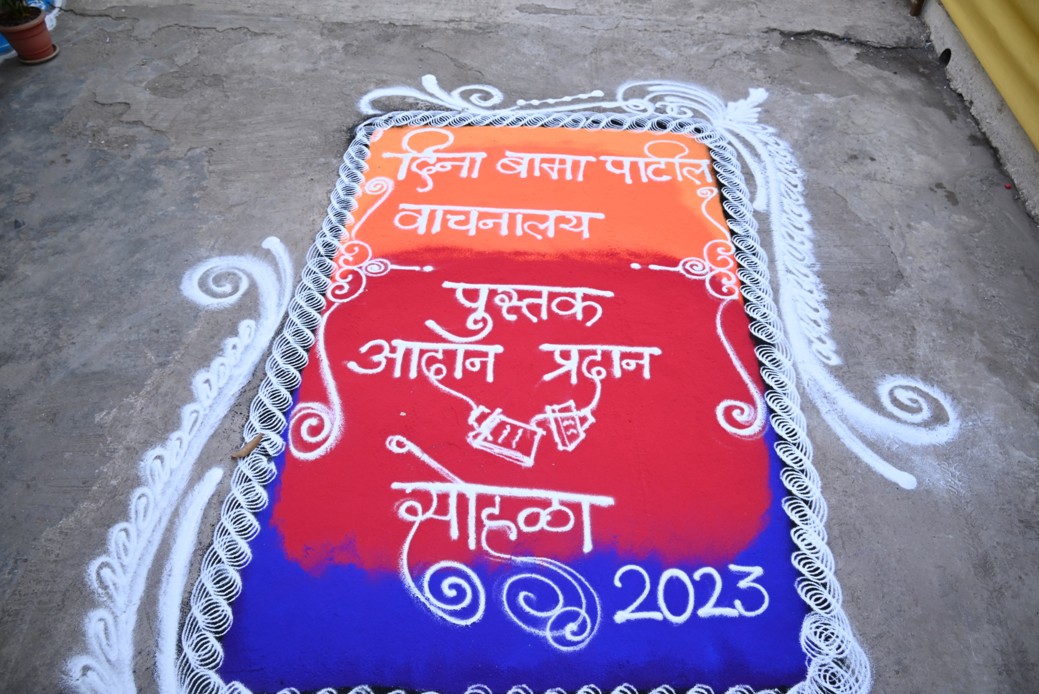 दिना बामा पाटील
वाचनालय
पुस्तक
आदान प्रदान
सोहळा
2023